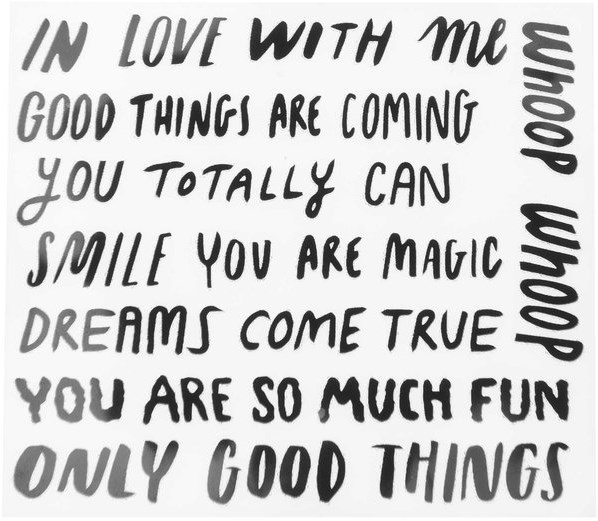 IN LOVE WITH me
GOOD THINGS ARE COMING
YOU TOTALLY CAN
SMILE YOU ARE MAGIC
DREAMS COME TRUE
YOU ARE SO MUCH FUN
ONLY GOOD THINGS
WHOOP WHOOP